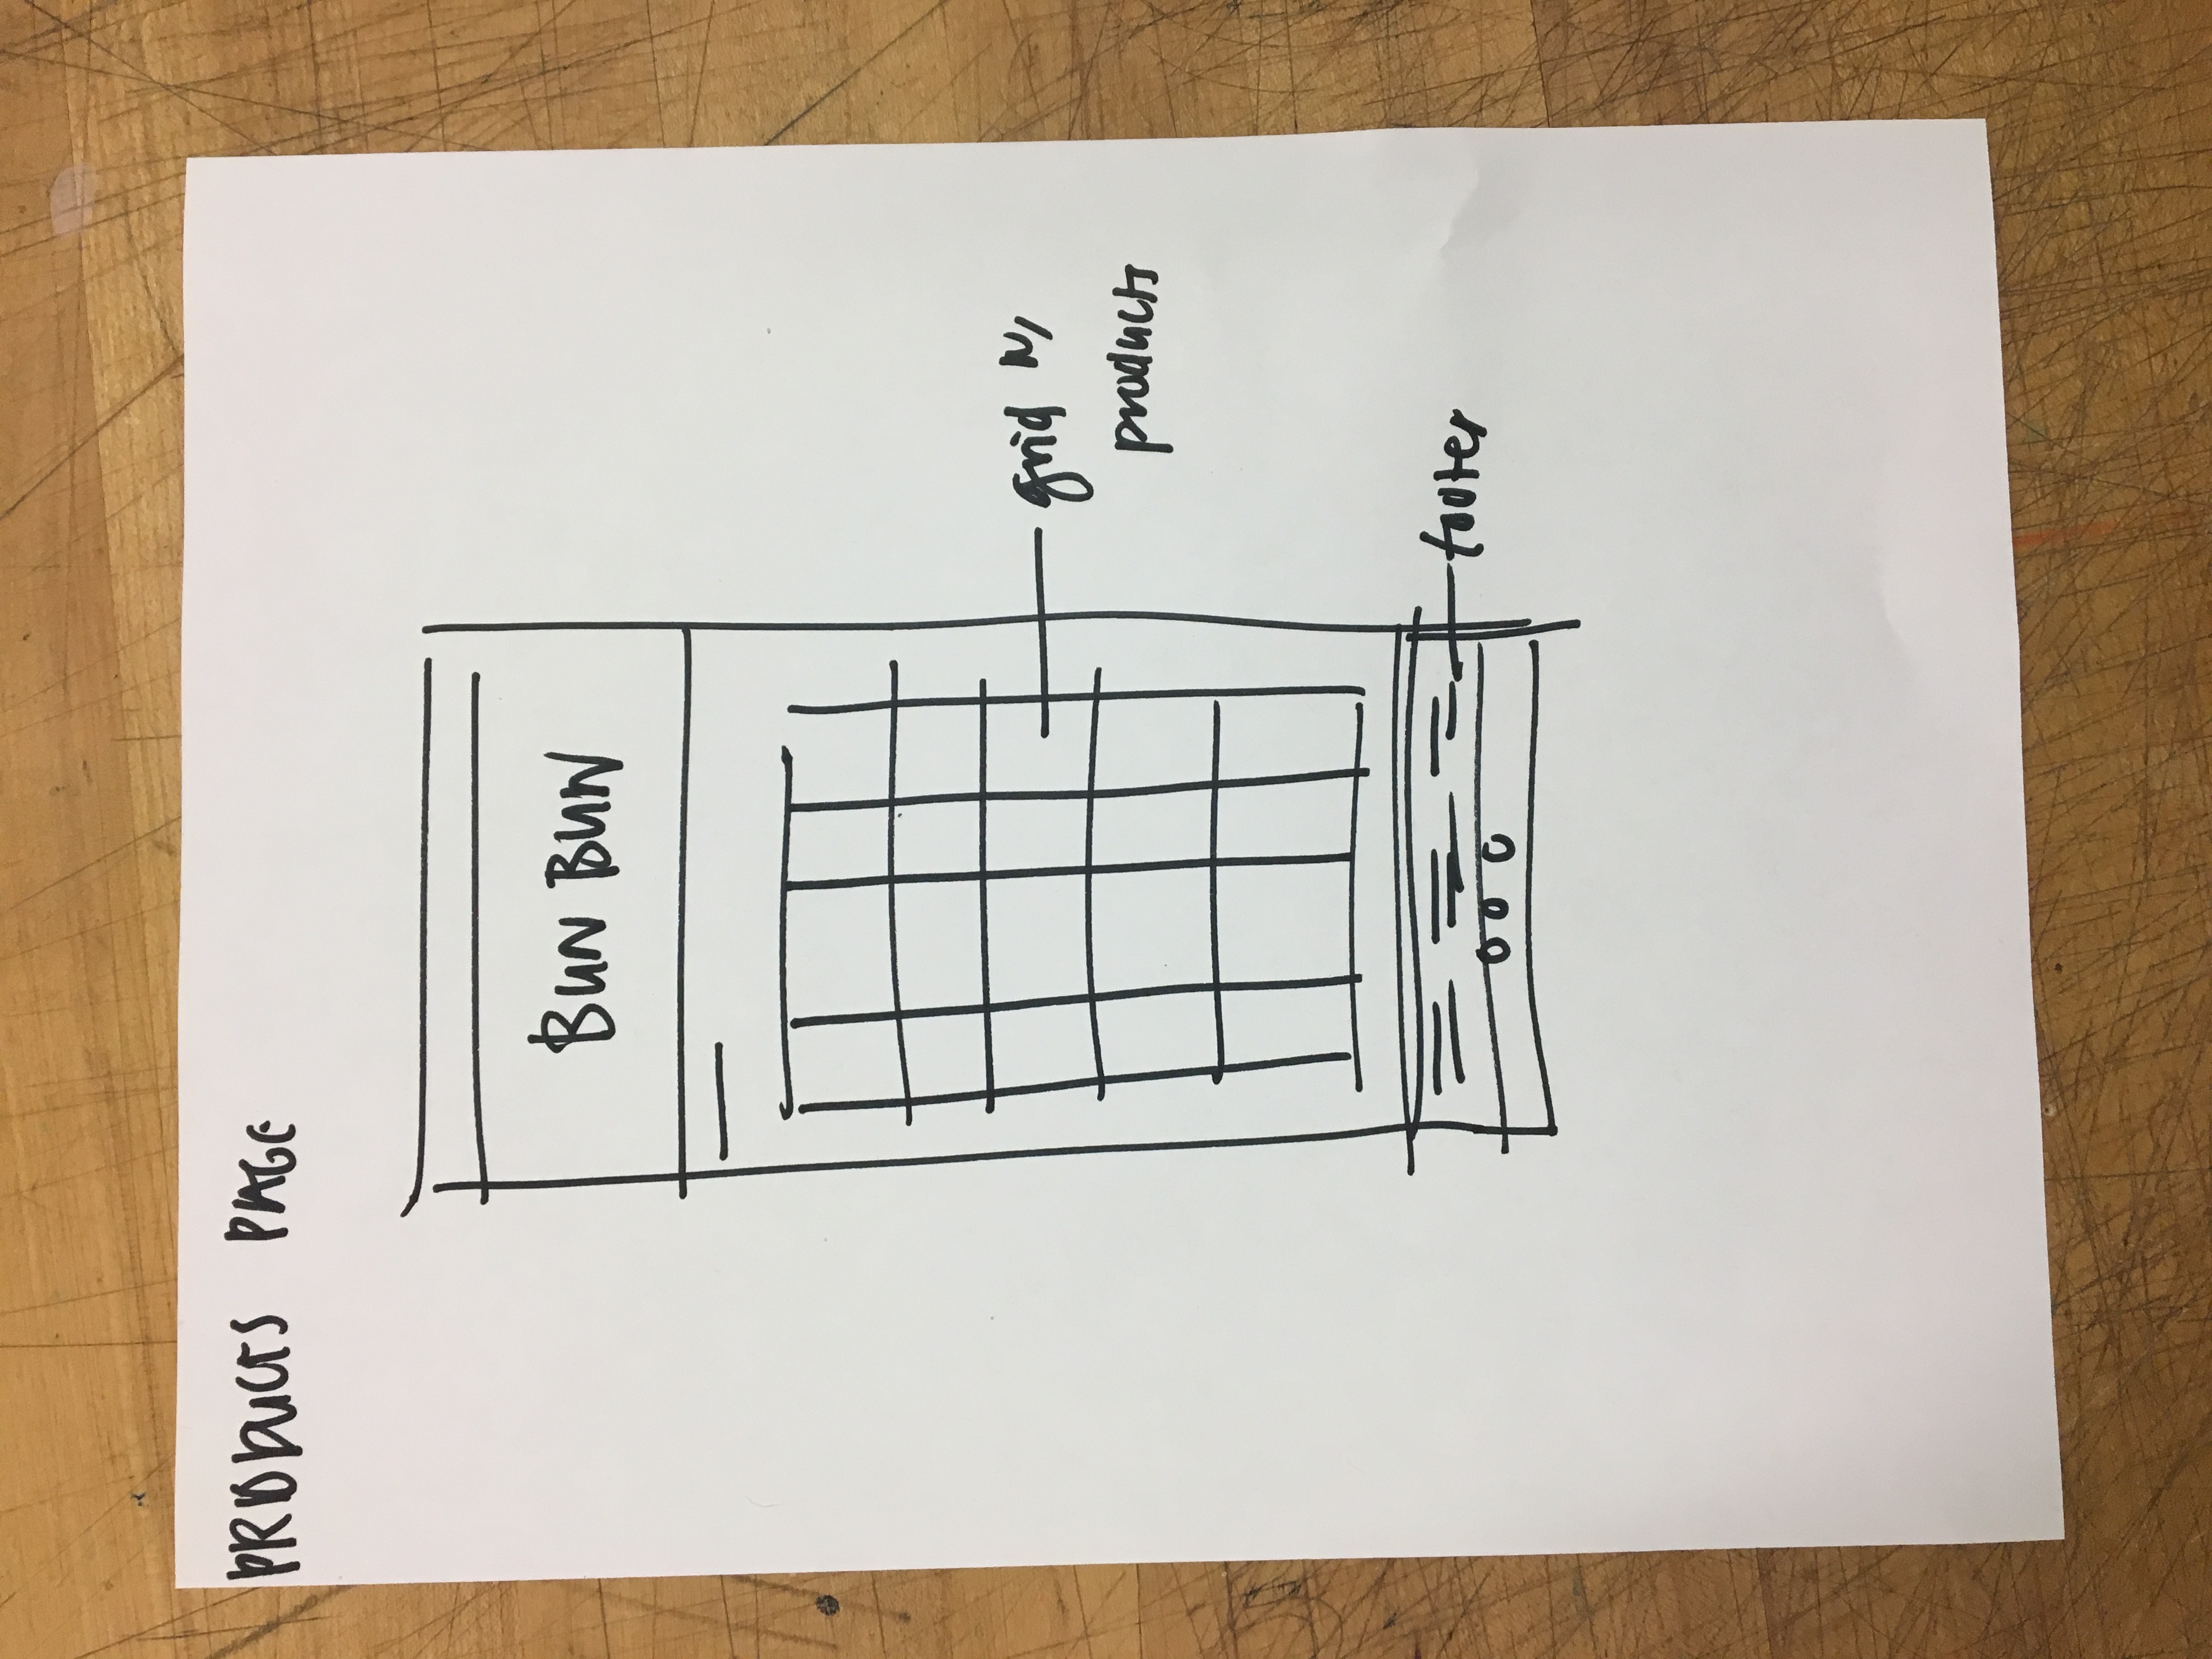 PRODUCTS PAGE
BUN BUN
grid w/
products
footer